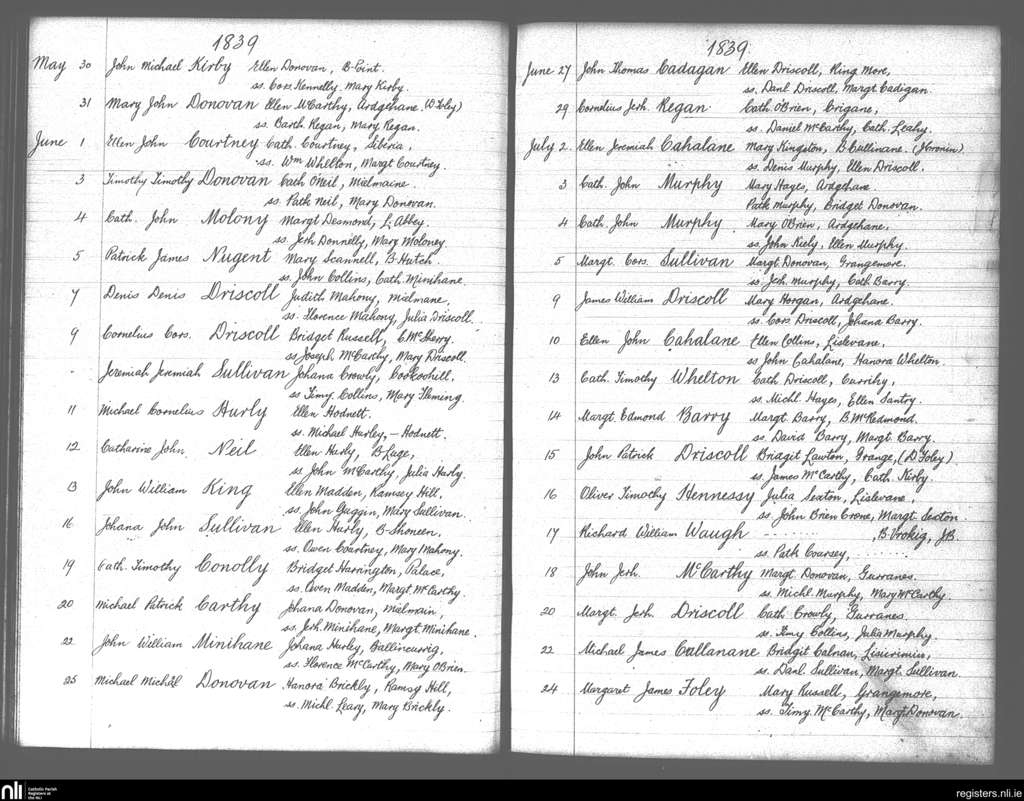 1839
May 30 John Michael Kirby Ellen Donovan, B-Point.
ss. Cors. Kennelly, Mary Kirby.
31 Mary John Donovan Ellen McCarthy, Ardgehane. (W Foley)
ss. Barth. Regan, Mary Regan.
June 1 Ellen John Courtney Cath. Courtney, Siberia,
ss. Wm Whelton, Margt Courtney.
3 Timothy Timothy Donovan Cath ONeil, Mielmaine.
ss. Patk Neil, Mary Donovan.
4 Cath. John Molony Margt Desmond, L. Abbey.
ss. Jerh Donnelly, Mary Moloney.
5 Patrick James Nugent Mary Scannell, B-Hutch.
ss. John Collins, Cath. Minihane.
7 Denis Denis Driscoll Judith Mahony, Mielmane,
ss. Florence Mahony, Julia Driscoll.
9 Cornelius Cors. Driscoll Bridget Russell, C McSherry.
ss Joseph McCarthy, Mary Driscoll.
Jeremiah Jeremiah Sullivan Johana Crowly, Cookoohill,
ss Timy. Collins, Mary Fleming.
11 Michael Cornelius Hurly Ellen Hodnett.
ss. Michael Hurley, — Hodnett.
12 Catharine John Neil Ellen Hurly, B-Luge,
ss. John McCarthy, Julia Hurly.
13 John William King Ellen Madden, Ramsey Hill,
ss. John Guggin, Mary Sullivan.
16 Johana John Sullivan Ellen Hurly, B-Shoneen,
ss. Owen Courtney, Mary Mahony.
19 Cath. Timothy Conolly Bridget Harrington, Palace,
ss. Owen Madden, Margt. McCarthy.
20 Michael Patrick Carthy Johana Donovan, Mielmain.
ss. Jerh. Minihane, Margt. Minihane.
22 John William Minihane Johana Hurley, Ballincurrig,
ss. Florence McCarthy, Mary OBrien.
25 Michael Michael Donovan Hanora Brickly, Ramsy Hill,
ss. Michl. Leary, Mary Brickly.
1839.
June 27 John Thomas Cadagan Ellen Driscoll, Ring More,
ss. Danl Driscoll, Margt. Cadigan.
29 Cornelius Jerh. Regan. Cath. OBrien, Crigane,
ss. Daniel McCarthy, Cath. Leahy.
July 2. Ellen Jeremiah Cahalane Mary Kingston, B-Cullinane. (J Cronin).
ss. Denis Murphy, Ellen Driscoll.
3 Cath. John Murphy Mary Hayes, Ardgehane.
Patk Murphy, Bridget Donovan.
4 Cath. John Murphy Mary OBrien, Ardgehane,
ss John Kiely, Ellen Murphy.
5 Margt. Cors. Sullivan Margt. Donovan, Grangemore.
ss Jerh. Murphy, Cath Barry.
9 James William Driscoll Mary Horgan, Ardgehane.
ss. Cors. Driscoll, Johana Barry.
10 Ellen John Cahalane Ellen Collins, Lislevane,
ss John Cahalane, Hanora Whelton.
13 Cath. Timothy Whelton Cath. Driscoll, Currihy,
ss. Michl. Hayes, Ellen Santry.
14 Margt. Edmond Barry Margt. Barry, B. McRedmond.
ss. David Barry, Margt. Barry.
15 John Patrick Driscoll Bridgit Lawton, Grange, (D Foley)
ss. James McCarthy, Cath. Kirby.
16 Oliver Timothy Hennessy Julia Sexton, Lislevane.
ss. John Brien Crone, Margt. Sexton.
17 Richard William Waugh , B. Vrokig, JB.
ss. Patk Coursey,
18 John Jerh. McCarthy Margt. Donovan, Gurranes.
ss. Michl. Murphy, Mary McCarthy.
20 Margt. Jerh Driscoll Cath. Crowly, Gurranes.
ss. Timy Collins, Julia Murphy.
22 Michael James Callanane Bridgit Calnan,
ss. Danl. Sullivan, Margt. Sullivan.
24 Margaret James Foley Mary Russell, Grangemore,
ss. Timy. McCarthy, Margt. Donovan.
nli Catholic Parish
Registers at
the NLI
registers.nli.ie